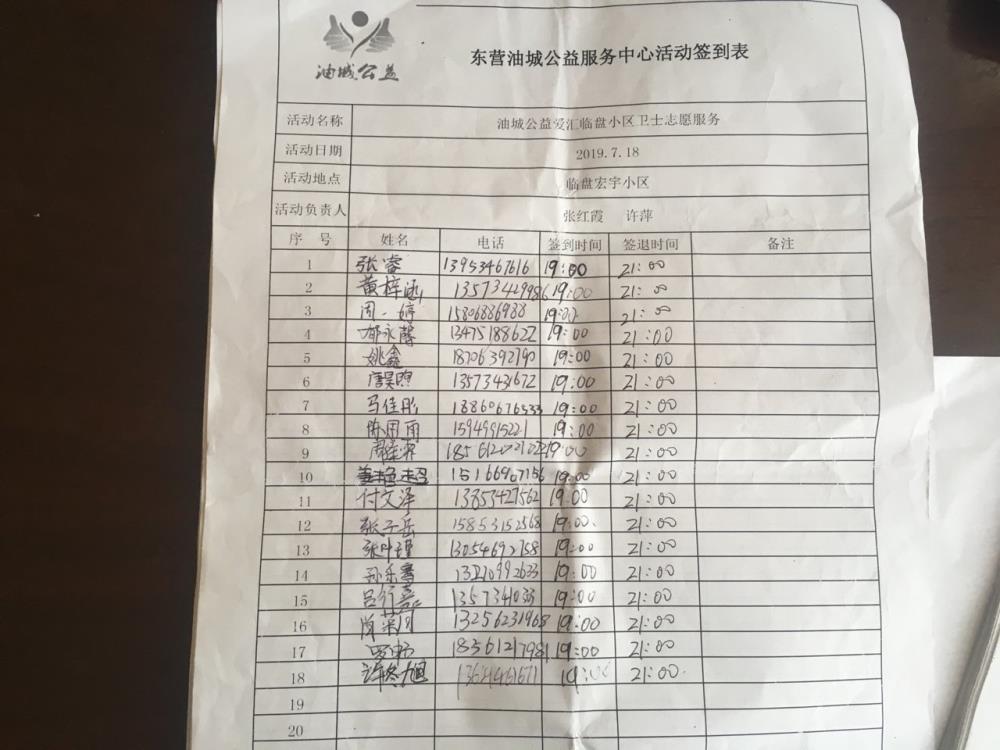 油城公益
东营油城公益服务中心活动签到表
活动名称 油城公益爱汇临盘小区卫士志愿服务
活动日期 2019.7.18
活动地点 临盘宏宇小区
活动负责人 张红霞 许萍
序号 姓名 电话 签到时间 签退时间 备注
1 张睿 13953467616 19:00 21:00
2 黄梓涵 13573429986 19:00 21:00
3 周一婷 15806886988 19:00 21:00
4 郁永馨 13475188622 19:00 21:00
5 姚鑫 18706392790 19:00 21:00
6 唐昊煦 13573431672 19:00 21:00
7 马佳彤 18860676533 19:00 21:00
8 陈雨雨 15949915221 19:00 21:00
9 19:00 21:00
10 15166967156 19:00 21:00
11 付文泽 13853427562 19:00 21:00
12 张子岳 15853152568 19:00 21:00
13 张叶瑾 13054692758 19:00 21:00
14 孙乐骞 13210992633 19:00 21:00
15 吕行嘉 19:00 21:00
16 13256231968 19:00 21:00
17 罗畅 18561217981 19:00 21:00
18 许冬旭 19:00 21:00
19
20